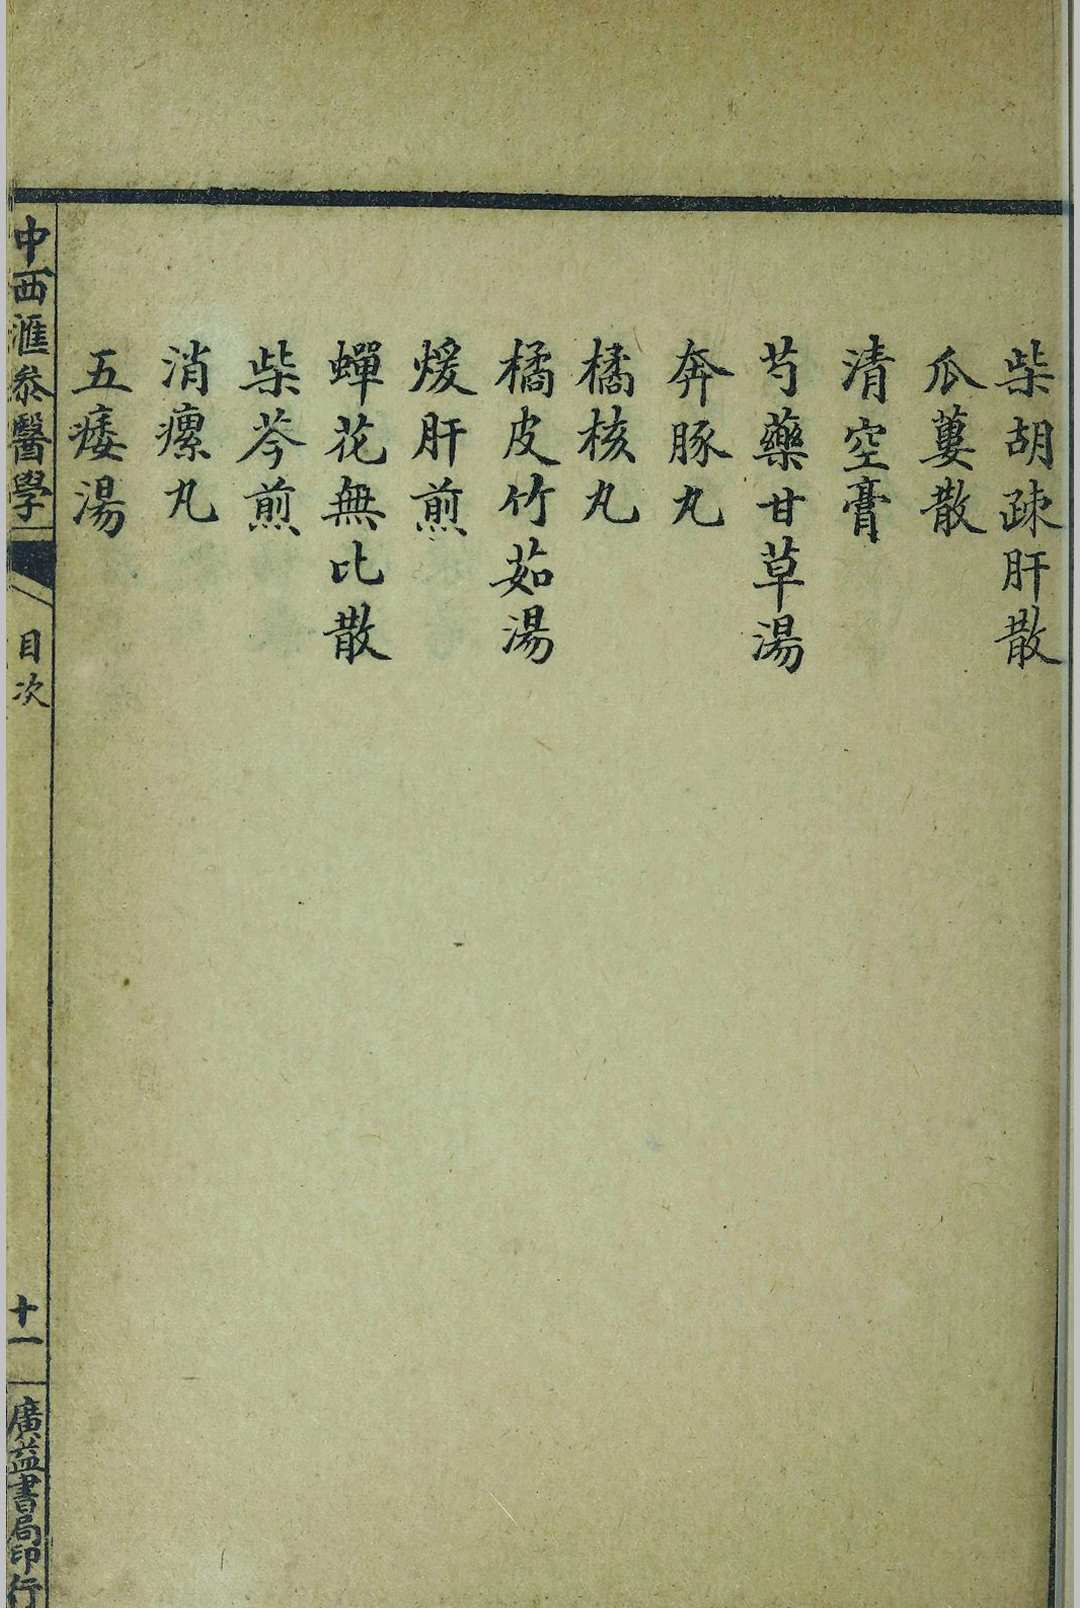 柴胡疎肝散
瓜蔞散
清空膏
芍藥甘草湯
奔豚丸
橘核丸
橘皮竹茹湯
煖肝煎
蟬花無比散
柴芩煎
消瘰丸
五痿湯
中西滙叅醫學
目次
十一
廣益書局印行